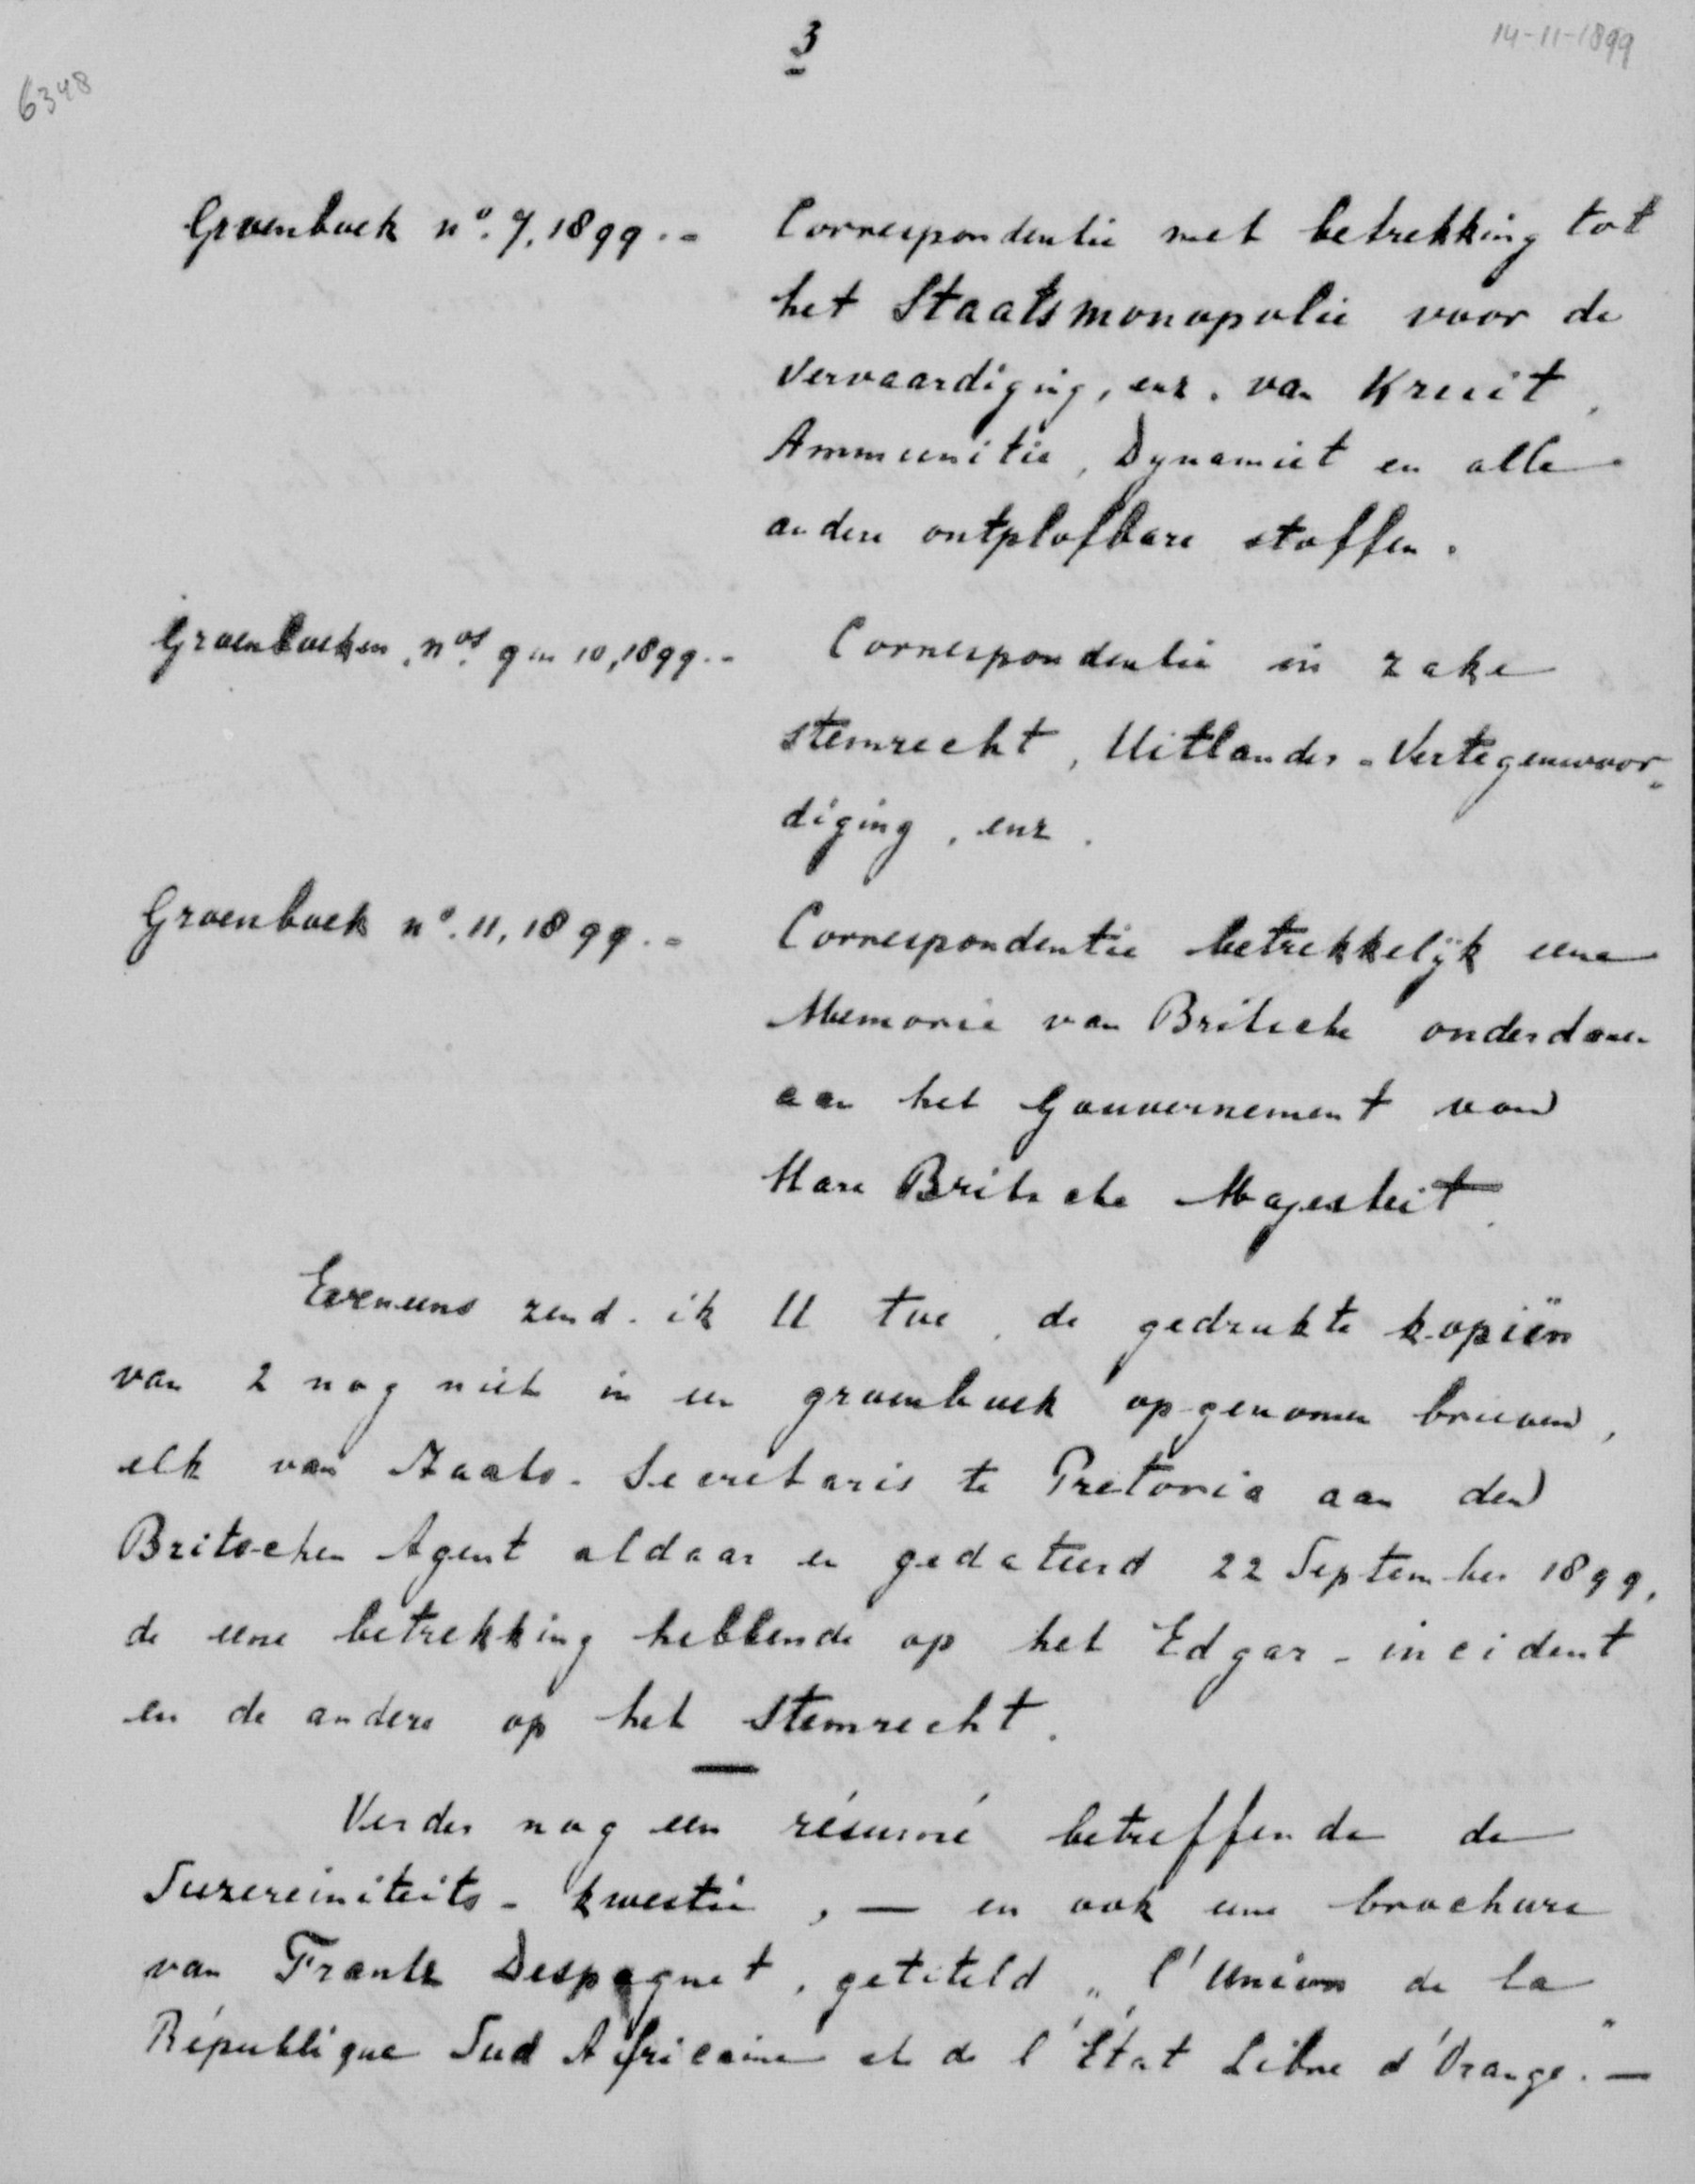 3
14-11-1899
6348
Groenboek no. 7, 1899.- Correspondentie met betrekking tot
het Staatsmonopolie voor de
vervaardiging, enz. van Kruit,
Ammunitie, Dynamiet en alle
andere ontplofbare stoffen.
Groenboeken, nos. 9 en 10, 1899.- Correspondentie in zake
stemrecht, Uitlander-Vertegenwoor-
diging, enz.
Groenboek no. 11, 1899.- Correspondentie betrekkelijk eene
Memorie van Britsche onderdanen
aan het Gouvernement van
Hare Britsche Majesteit.
Eveneens zend ik U toe, de gedrukte kopiën
van 2 nog niet in een groenboek opgenomen brieven,
elk van Staats-Secretaris te Pretoria aan den
Britschen Agent aldaar en gedateerd 22 September 1899,
de eene betrekking hebbende op het Edgar-incident
en de andere op het stemrecht.
Verder nog een résumé betreffende de
Suzereiniteits-kwestie, — en ook eene brochure
van Frantz Despagnet, getiteld „l'Union de la
République Sud Africaine et de l'État Libre d'Orange." —